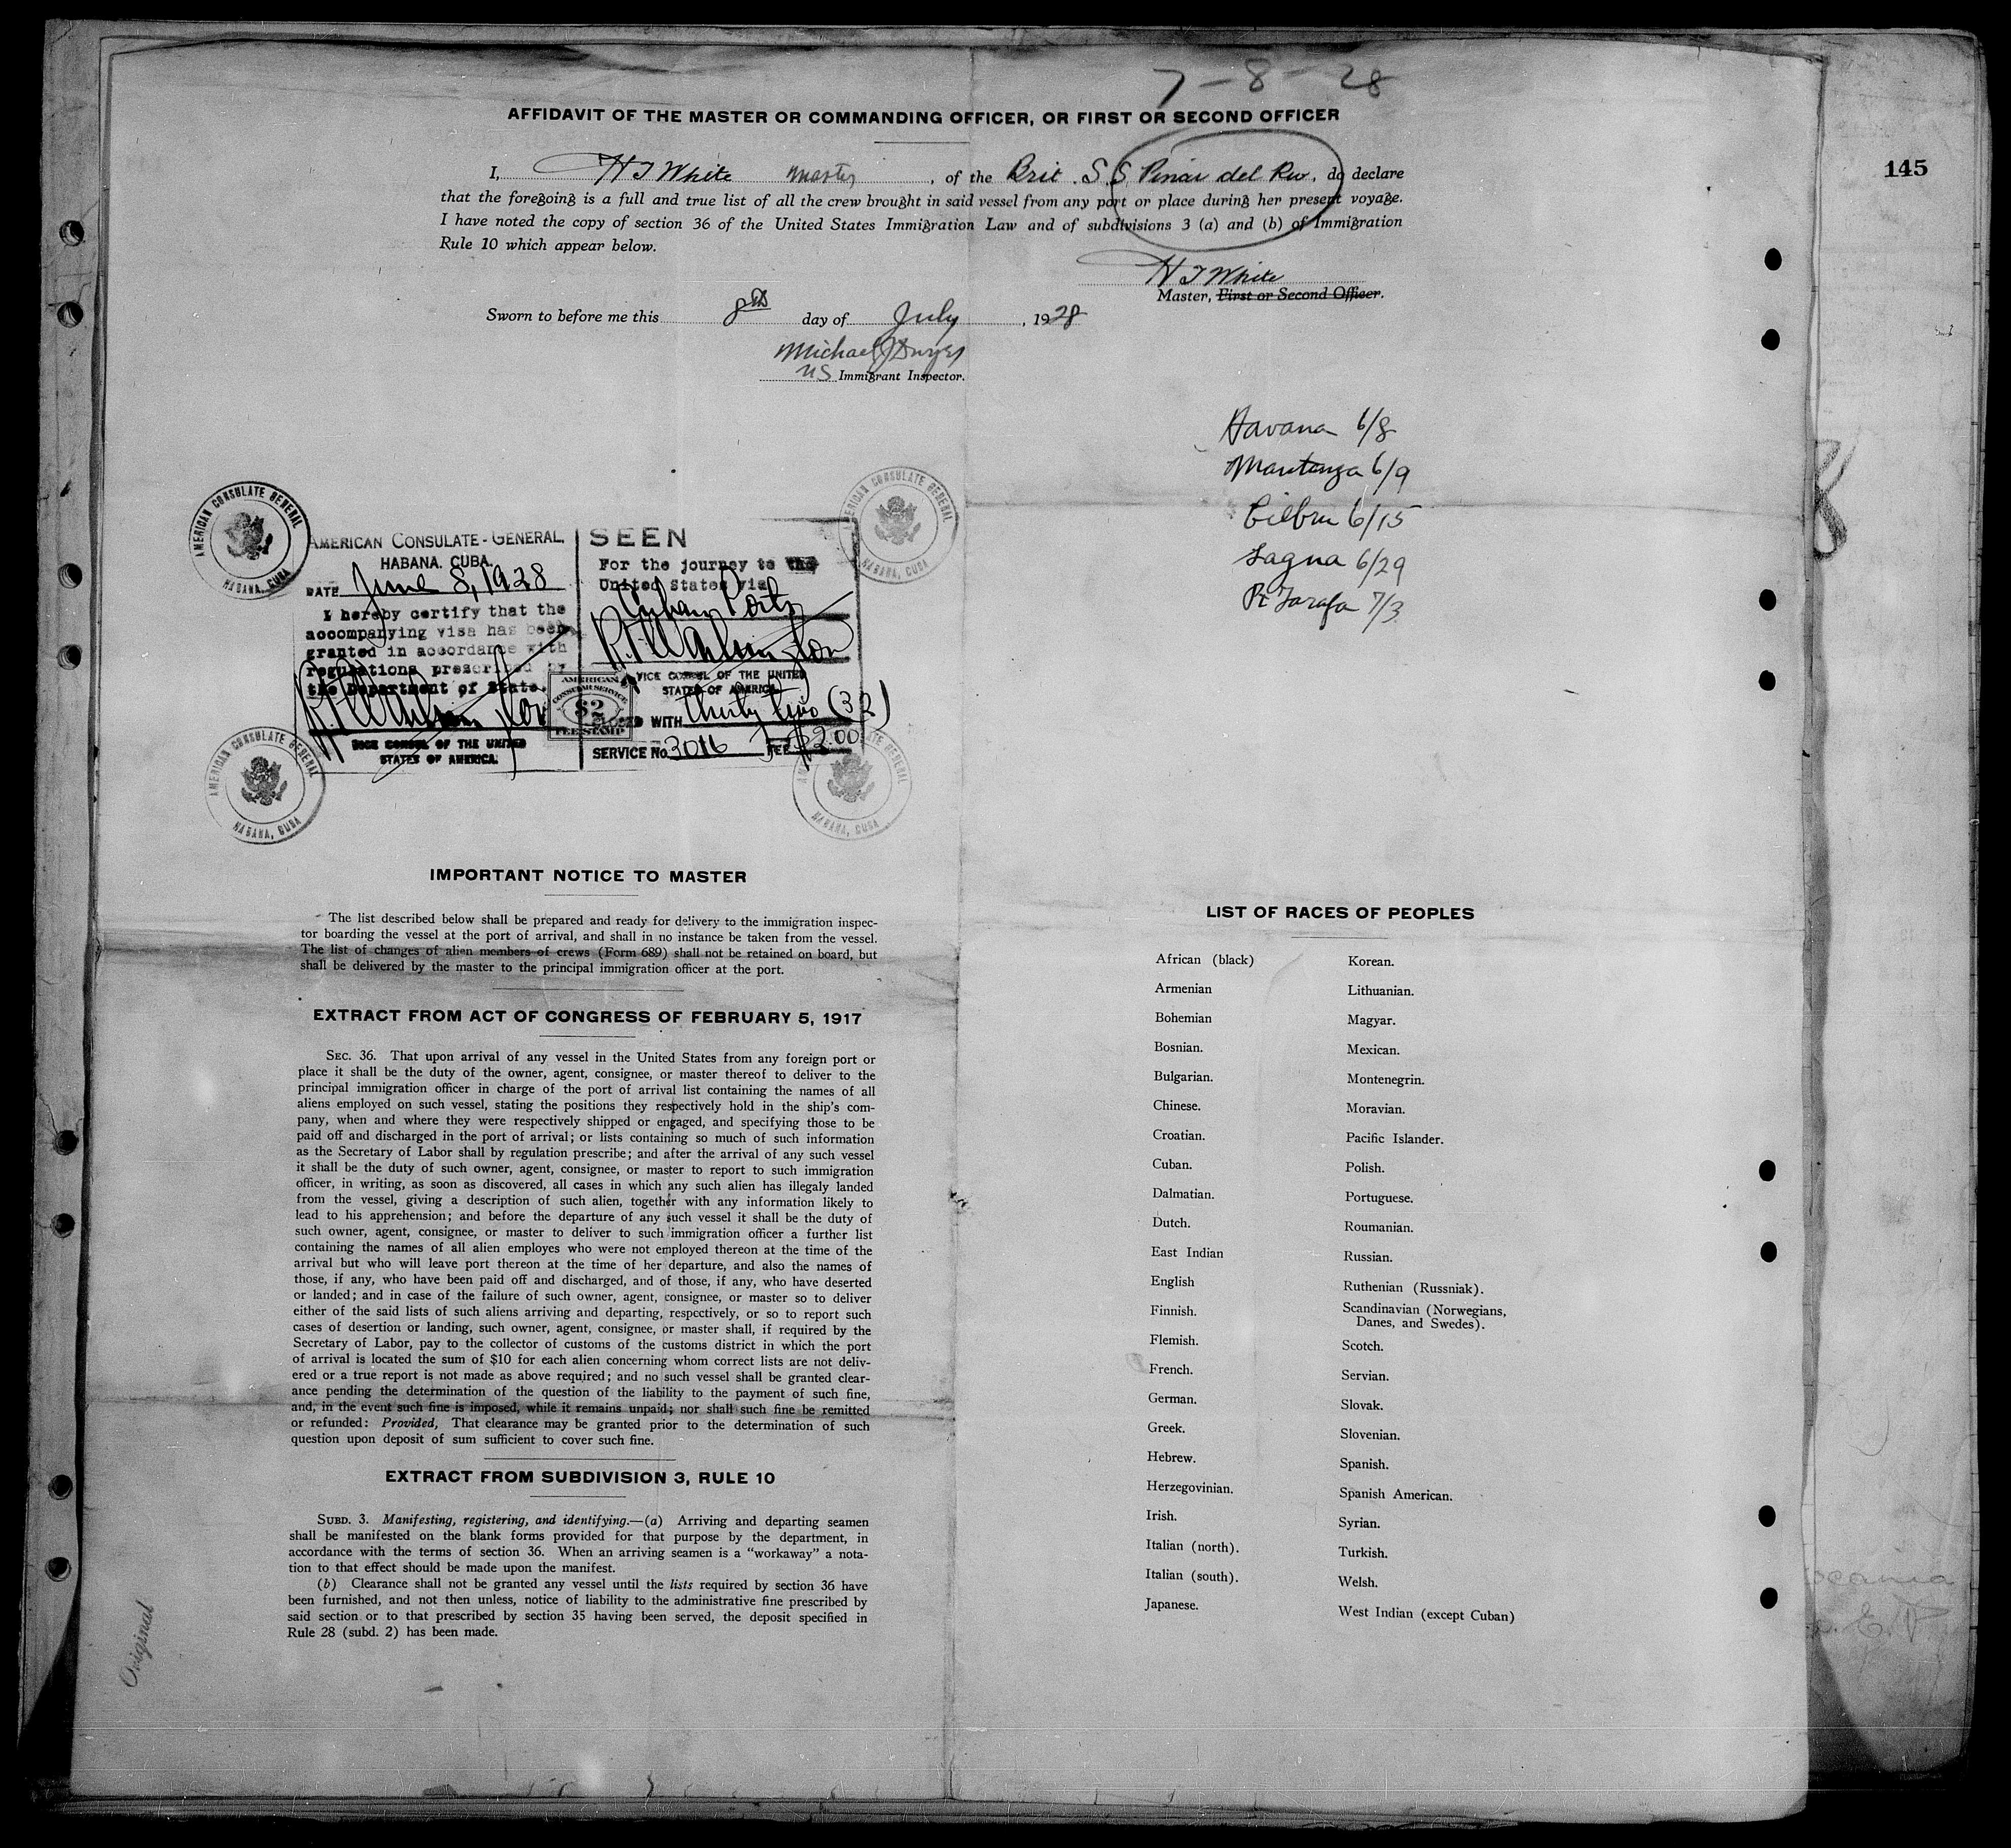 7-8-28
AFFIDAVIT OF THE MASTER OR COMMANDING OFFICER, OR FIRST OR SECOND OFFICER
145
I, H J White master, of the Brit. S.S. Pinar del Rio, do declare
that the foregoing is a full and true list of all the crew brought in said vessel from any port or place during her present voyage.
I have noted the copy of section 36 of the United States Immigration Law and of subdivisions 3 (a) and (b) of Immigration
Rule 10 which appear below.
H J White
Master, First or Second Officer.
Sworn to before me this 8th day of July, 1928
Michael J Dwyer
US Immigrant Inspector.
Havana 6/8
Mantanza 6/9
6/15
Sagua 6/29
Pt Tarafa 7/3
AMERICAN CONSULATE GENERAL
HABANA, CUBA
AMERICAN CONSULATE GENERAL
HABANA, CUBA
AMERICAN CONSULATE-GENERAL,
HABANA, CUBA.
DATE June 8, 1928
I hereby certify that the
accompanying visa has been
granted in accordance with
regulations prescribed by
the Department of State.
VICE CONSUL OF THE UNITED
STATES OF AMERICA.
SEEN
For the journey to the
United States via
Cuban Ports
VICE CONSUL OF THE UNITED
STATES OF AMERICA
AMERICAN
CONSULAR SERVICE
$2
FEE STAMP
CLOSED WITH thirty two (32)
SERVICE No. 3016 FEE $2.00
AMERICAN CONSULATE GENERAL
HABANA, CUBA
AMERICAN CONSULATE GENERAL
HABANA, CUBA
IMPORTANT NOTICE TO MASTER
The list described below shall be prepared and ready for delivery to the immigration inspec-
tor boarding the vessel at the port of arrival, and shall in no instance be taken from the vessel.
The list of changes of alien members of crews (Form 689) shall not be retained on board, but
shall be delivered by the master to the principal immigration officer at the port.
EXTRACT FROM ACT OF CONGRESS OF FEBRUARY 5, 1917
SEC. 36. That upon arrival of any vessel in the United States from any foreign port or
place it shall be the duty of the owner, agent, consignee, or master thereof to deliver to the
principal immigration officer in charge of the port of arrival list containing the names of all
aliens employed on such vessel, stating the positions they respectively hold in the ship's com-
pany, when and where they were respectively shipped or engaged, and specifying those to be
paid off and discharged in the port of arrival; or lists containing so much of such information
as the Secretary of Labor shall by regulation prescribe; and after the arrival of any such vessel
it shall be the duty of such owner, agent, consignee, or master to report to such immigration
officer, in writing, as soon as discovered, all cases in which any such alien has illegaly landed
from the vessel, giving a description of such alien, together with any information likely to
lead to his apprehension; and before the departure of any such vessel it shall be the duty of
such owner, agent, consignee, or master to deliver to such immigration officer a further list
containing the names of all alien employes who were not employed thereon at the time of the
arrival but who will leave port thereon at the time of her departure, and also the names of
those, if any, who have been paid off and discharged, and of those, if any, who have deserted
or landed; and in case of the failure of such owner, agent, consignee, or master so to deliver
either of the said lists of such aliens arriving and departing, respectively, or so to report such
cases of desertion or landing, such owner, agent, consignee, or master shall, if required by the
Secretary of Labor, pay to the collector of customs of the customs district in which the port
of arrival is located the sum of $10 for each alien concerning whom correct lists are not deliv-
ered or a true report is not made as above required; and no such vessel shall be granted clear-
ance pending the determination of the question of the liability to the payment of such fine,
and, in the event such fine is imposed, while it remains unpaid; nor shall such fine be remitted
or refunded: Provided, That clearance may be granted prior to the determination of such
question upon deposit of sum sufficient to cover such fine.
EXTRACT FROM SUBDIVISION 3, RULE 10
SUBD. 3. Manifesting, registering, and identifying.—(a) Arriving and departing seamen
shall be manifested on the blank forms provided for that purpose by the department, in
accordance with the terms of section 36. When an arriving seamen is a "workaway" a nota-
tion to that effect should be made upon the manifest.
(b) Clearance shall not be granted any vessel until the lists required by section 36 have
been furnished, and not then unless, notice of liability to the administrative fine prescribed by
said section or to that prescribed by section 35 having been served, the deposit specified in
Rule 28 (subd. 2) has been made.
Original
LIST OF RACES OF PEOPLES
African (black)
Armenian
Bohemian
Bosnian.
Bulgarian.
Chinese.
Croatian.
Cuban.
Dalmatian.
Dutch.
East Indian
English
Finnish.
Flemish.
French.
German.
Greek.
Hebrew.
Herzegovinian.
Irish.
Italian (north).
Italian (south).
Japanese.
Korean.
Lithuanian.
Magyar.
Mexican.
Montenegrin.
Moravian.
Pacific Islander.
Polish.
Portuguese.
Roumanian.
Russian.
Ruthenian (Russniak).
Scandinavian (Norwegians,
Danes, and Swedes).
Scotch.
Servian.
Slovak.
Slovenian.
Spanish.
Spanish American.
Syrian.
Turkish.
Welsh.
West Indian (except Cuban)